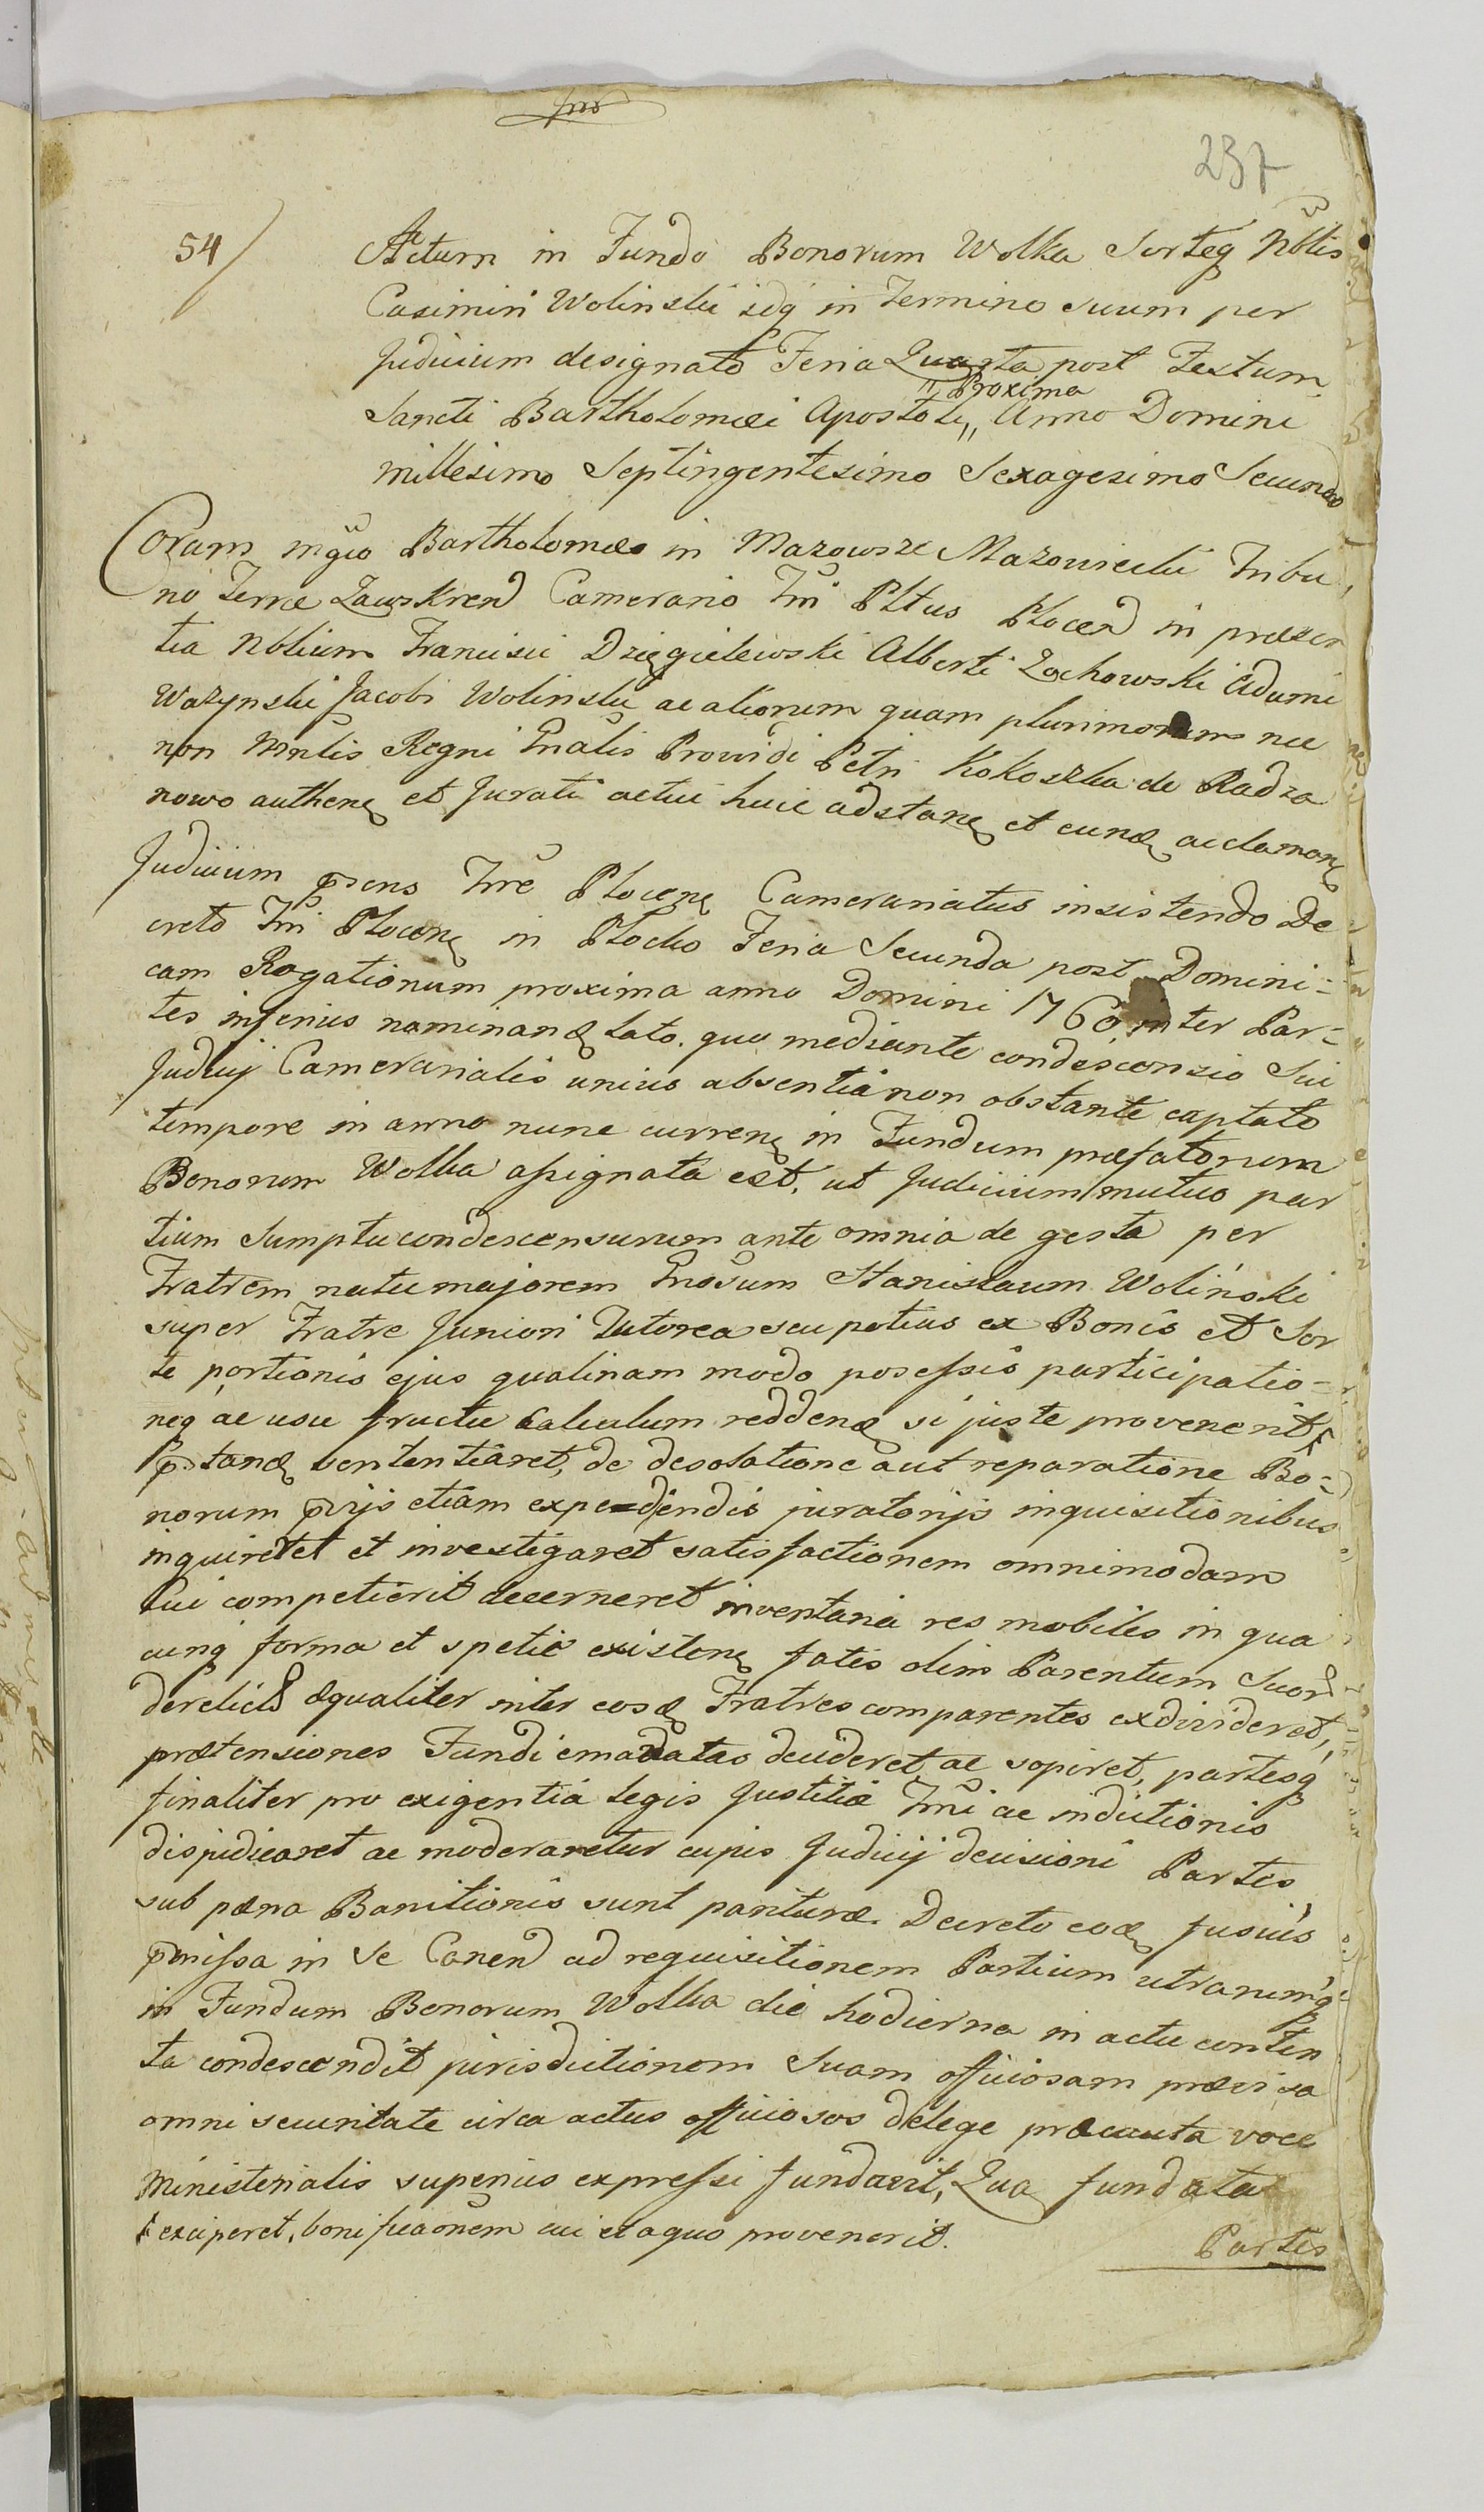 237
54/
Actum in Fundo Bonorum Wolka Sorteq Nblis
Casimiri Wolinski idq in Termino suum per
Judicium designato Feria Quarta post Festum
Sancti Bartholomæi Apostoli " Proxima " Anno Domini
millesimo Septingentesimo Sexagesimo Secundo
Coram mgco Bartholomæo in Mazowsze Mazowiecki Tribu
no Terræ Zawskren Camerario Trri Pltus Plocen in præsen
tia Nblium Francisci Dzięgielewski Alberti Zochowski Adami
Wazynski Jacobi Wolinski ac aliorum quam plurimorum nec
non Mnlis Regni Gnalis Providi Petri Kokoszka de Radza
nowo authenę et Jurati actui huic adstanę et eundę acclamanę
Judicium pńsens Trre Plocenę Camerariatus insistendo De
creto Trri Plocenę in Plocko Feria Secunda post Domini=
cam Rogationum proxima anno Domini 1760 inter Par=
tes inferius nominandę lato. quo mediante condescensio Sui
Judicij Camerarialis unius absentia non obstante captato
tempore in anno nunc currenę in Fundum præfatorum
Bonorum Wolka assignata est, ut Judicium mutuo par
tium Sumptu condescensurum ante omnia de gesta per
Fratrem natu majorem Gnosum Stanislaum Woliński
super Fratre Juniori Tutorea seu potius ex Bonis et Sor
te portionis ejus qualinam modo possessis participatio=
neq ac usu fructu Calculum reddendę si juste provenerit
pstandę sententiaret, de desolatione aut reparatione Bo=
norum pvijs etiam expedendis juratorijs inquisitionibus
inquiretet et investigaret satisfactionem omnimodam
Cui competierit decerneret inventaria res mobiles in qua
cunq forma et spetie existenę fatis olim Parentum Suor
derelicta æqualiter inter eosdę Fratres comparentes exdivideret,
prætensiones Fundi emanatas decideret ac sopiret, partesq
finaliter pro exigentia legis Justitiæ Trri ac indictionis
disjudicaret ac moderaretur cujus Judicij decisioni Partes
sub pæna Banitionis sunt parituræ. Decreto eodę fusius
pmissa in Se Conen ad requisitionem Partium utrarumq
in Fundum Bonorum Wolka die hodierna in actu conten
ta condescendit jurisdictionem Suam officiosam prævisa
omni securitate circa actus officiosos de lege præcauta voce
Ministerialis superius expressi fundavit, Qua fundata
exciperet, bonificaonem cui et a quo provenerit.
Partes